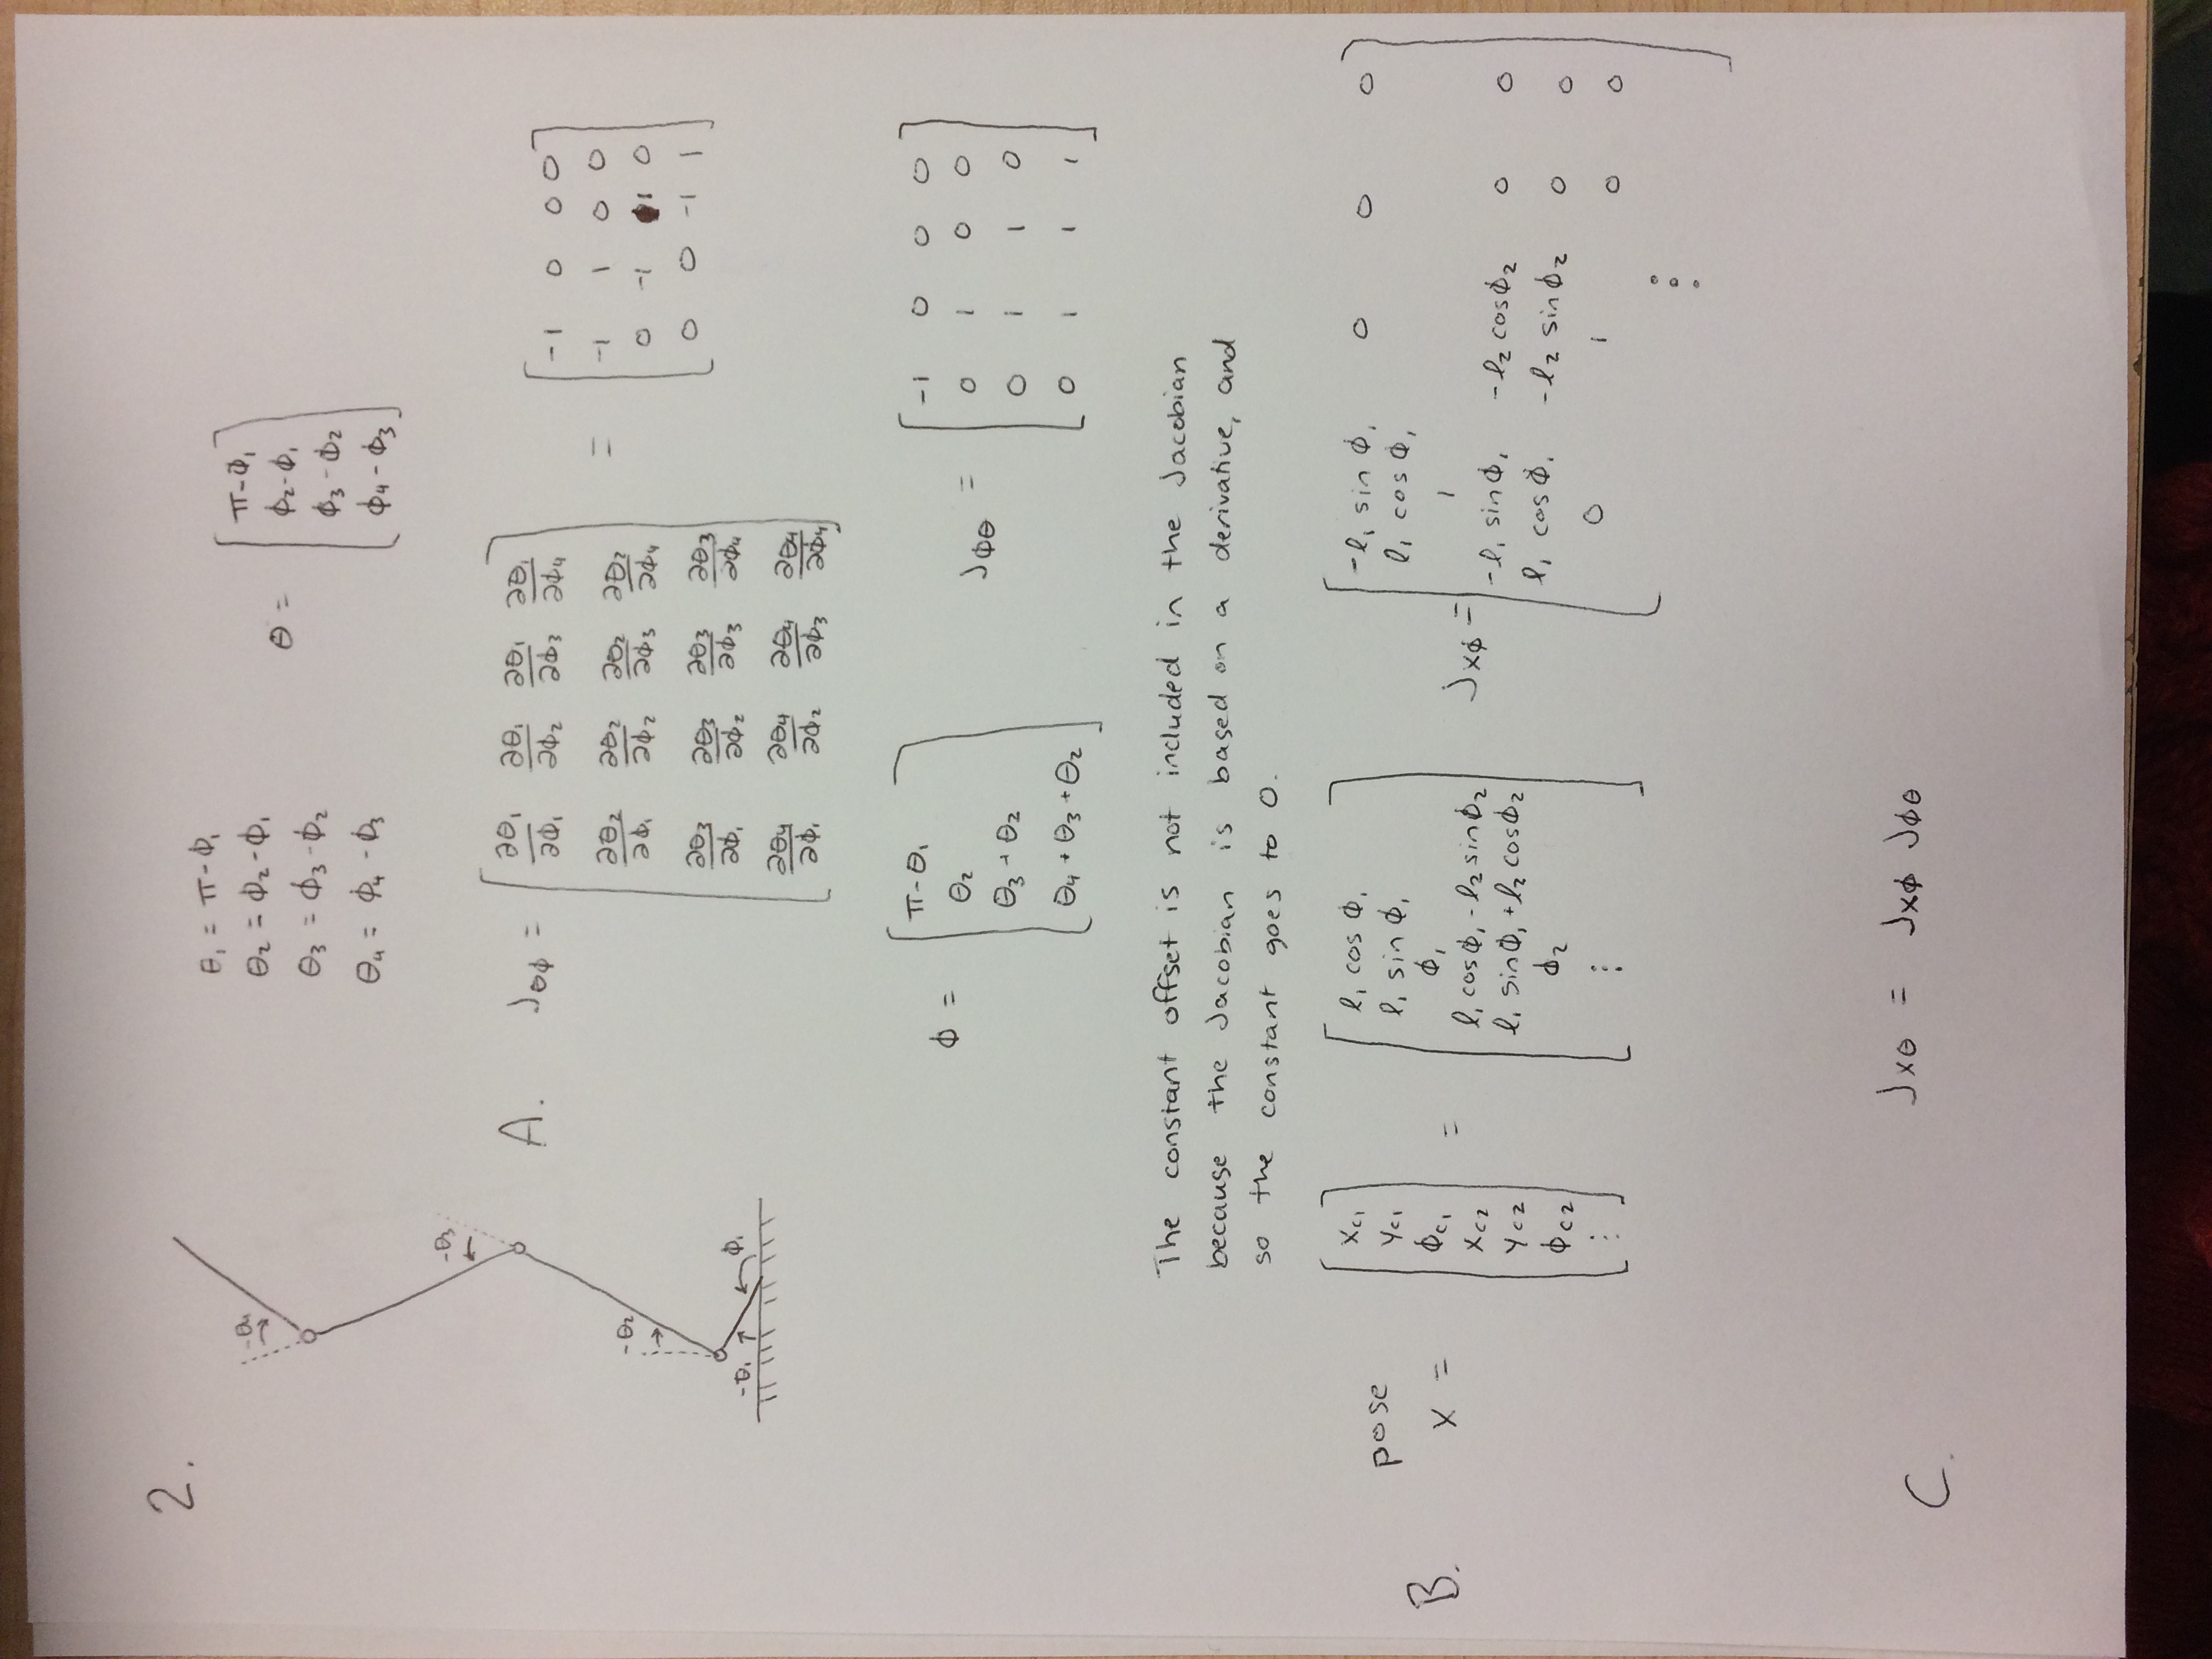 2.
-θ₄
-θ₃
-θ₂
-θ₁ φ₁
θ₁ = π-φ₁
θ₂ = φ₂-φ₁
θ₃ = φ₃-φ₂
θ₄ = φ₄-φ₃
θ = [ π-φ₁
φ₂-φ₁
φ₃-φ₂
φ₄-φ₃ ]
A. J_θφ = [ ∂θ₁/∂φ₁ ∂θ₁/∂φ₂ ∂θ₁/∂φ₃ ∂θ₁/∂φ₄
∂θ₂/∂φ₁ ∂θ₂/∂φ₂ ∂θ₂/∂φ₃ ∂θ₂/∂φ₄
∂θ₃/∂φ₁ ∂θ₃/∂φ₂ ∂θ₃/∂φ₃ ∂θ₃/∂φ₄
∂θ₄/∂φ₁ ∂θ₄/∂φ₂ ∂θ₄/∂φ₃ ∂θ₄/∂φ₄ ]
= [ -1 0 0 0
-1 1 0 0
0 -1 1 0
0 0 -1 1 ]
φ = [ π-θ₁
θ₂
θ₃+θ₂
θ₄+θ₃+θ₂ ]
J_φθ = [ -1 0 0 0
0 1 0 0
0 1 1 0
0 1 1 1 ]
The constant offset is not included in the Jacobian
because the Jacobian is based on a derivative, and
so the constant goes to 0.
B. pose
x = [ x_c1
y_c1
φ_c1
x_c2
y_c2
φ_c2
⋮ ]
= [ l₁ cos φ₁
l₁ sin φ₁
φ₁
l₁ cosφ₁-l₂sinφ₂
l₁ sinφ₁+l₂ cosφ₂
φ₂
⋮ ]
J_xφ = [ -l₁ sin φ₁ 0 0 0
l₁ cos φ₁
1
-l₁ sinφ₁ -l₂ cosφ₂ 0 0
l₁ cosφ₁ -l₂ sinφ₂ 0 0
0 1 0 0
⋮ ]
C. J_xθ = J_xφ J_φθ